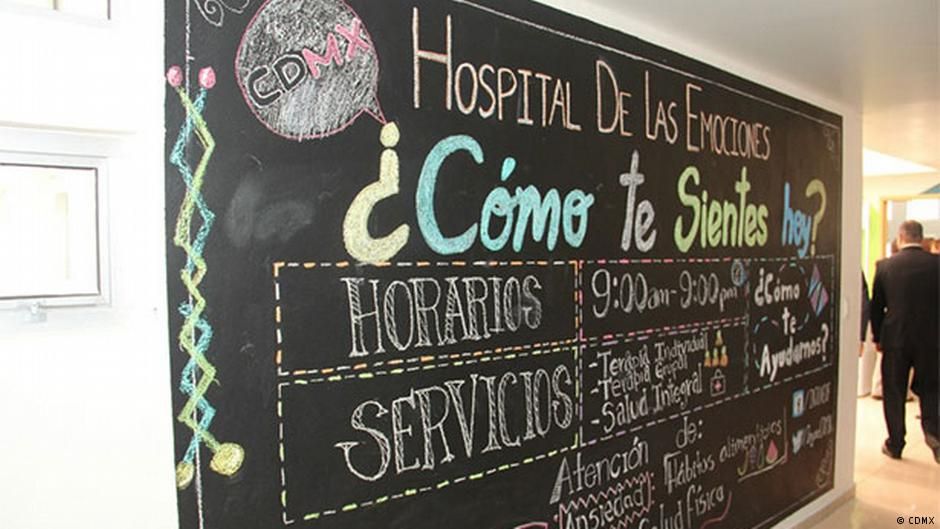 CDMX
HOSPITAL DE LAS EMOCIONES
¿Cómo te Sientes hoy?
HORARIOS
9:00am-9:00pm
¿Cómo
te
Ayudamos?
SERVICIOS
-Terapia Individual
-Terapia Grupal
-Salud Integral
Atención de:
Ansiedad
Hábitos alimenticios
Salud física
© CDMX